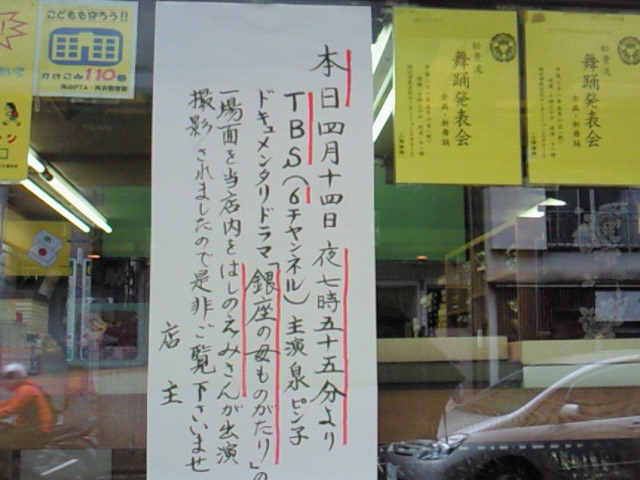 本日四月十四日夜七時五十五分より
TBS(6チャンネル)主演泉ピン子
ドキュメンタリドラマ「銀座の母ものがたり」の
一場面を当店内をはしのえみさんが出演
撮影されましたので是非ご覧下さいませ
店主
こどもを守ろう!!
かけこみ110番
松景流
舞踊発表会
古典・新舞踊
松景流
舞踊発表会
古典・新舞踊